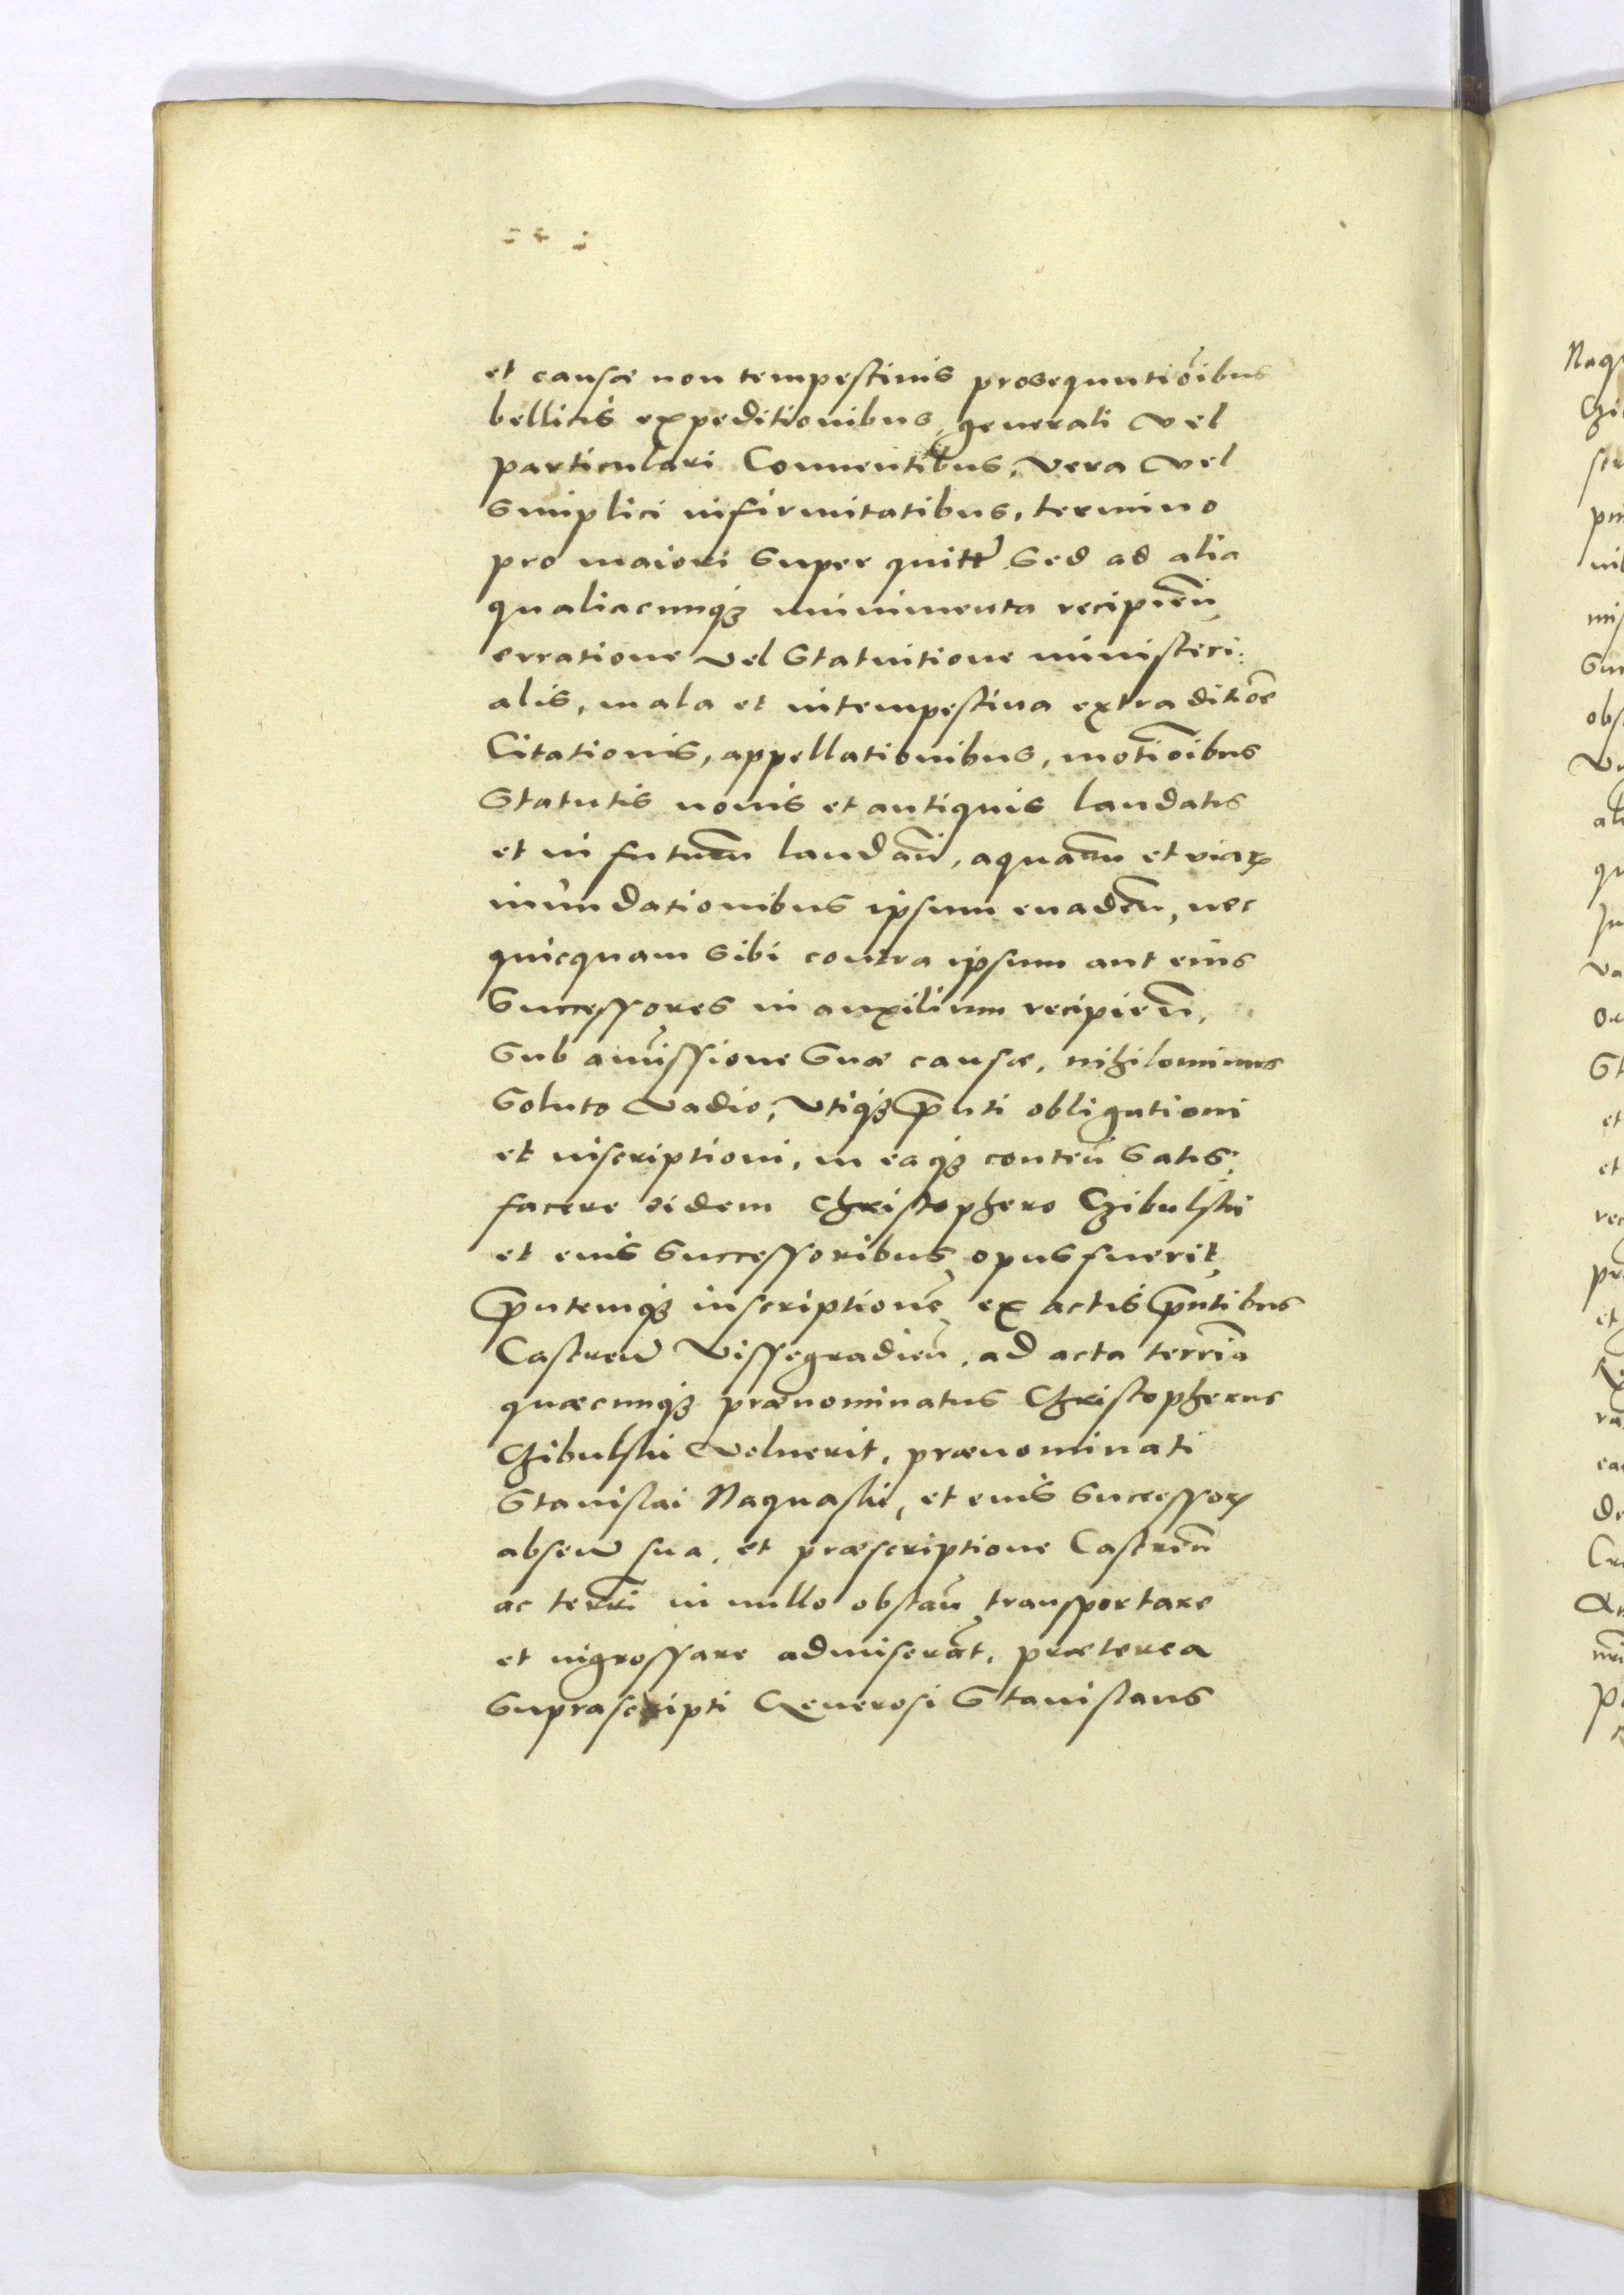 et causæ non tempestiuis prosequutiōibus
bellicis expeditionibus, generali vel
particulari Conuentibus, vera vel
simplici infirmitatibus, termino
pro maiori super quitt Sed ad alia
qualiacunq3 munimenta recipieñ
erratione vel Statuitione ministeri:
alis, mala et intempestiua extraditiōe
Citationis, appellationibus, motiōibus
Statutis nouis et antiquis laudatis
et in futuru laudañ, aquaru et viaꝝ
inundationibus ipsum euadeñ, nec
quicquam sibi contra ipsum aut eius
Successores in auxilium recipieñ,
Sub amissione Suæ causæ, nihilominus
Soluto Vadio, Vtiq3 p̃nti obligationi
et inscriptioni, in eaq3 conteñ Satis:
facere eidem Christophero Czibulski
et eius Successoribus opus fuerit,
p̃ntemq3 inscriptionẽ ex actis p̃ntibus
Castreñ Vissegradieñ, ad acta terr̃ia
quæcunq3 prænominatus Christopherus
Czibulski Voluerit, prænominati
Stanislai Naquaski, et eius Successoꝝ
abseñ sua, et præscriptione Castreñ
ac terri in nullo obstañ transportare
et ingrossare admiserāt, præterea
Suprascripti Generosi Stanislaus